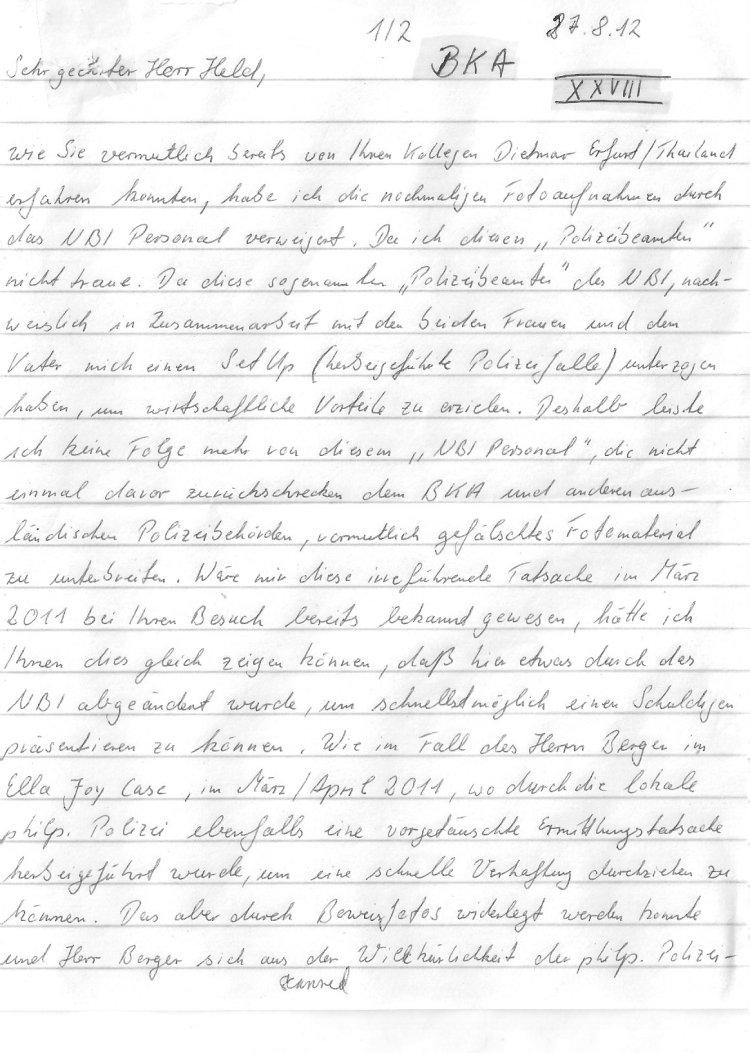 1/2 27.8.12
Sehr geehrter Herr Held, BKA
XXVIII
wie Sie vermutlich bereits von Ihren Kollegen Dietmar Erfurt/Thailand
erfahren konnten, habe ich die nochmaligen Fotoaufnahmen durch
das NBI Personal verweigert. Da ich diesen „Polizeibeamten"
nicht traue. Da diese sogenannten „Polizeibeamten" des NBI, nach-
weislich in Zusammenarbeit mit den beiden Frauen und dem
Vater mich einen SetUp (herbeigeführte Polizeifalle) unterzogen
haben, um wirtschaftliche Vorteile zu erzielen. Deshalb leiste
ich keine Folge mehr von diesem „NBI Personal", die nicht
einmal davor zurückschrecken dem BKA und anderen aus-
ländischen Polizeibehörden, vermutlich gefälschtes Fotomaterial
zu unterbreiten. Wäre mir diese irreführende Tatsache im März
2011 bei Ihren Besuch bereits bekannt gewesen, hätte ich
Ihnen dies gleich zeigen können, daß hier etwas durch das
NBI abgeändert wurde, um schnellstmöglich einen Schuldigen
präsentieren zu können. Wie im Fall des Herrn Berger im
Ella Joy Case, im März/April 2011, wo durch die lokale
philp. Polizei ebenfalls eine vorgetäuschte Ermittlungstatsache
herbeigeführt wurde, um eine schnelle Verhaftung durchziehen zu
können. Das aber durch Beweisfotos widerlegt werden konnte
und Herr Berger sich aus der Willkürlichkeit der philp. Polizei-